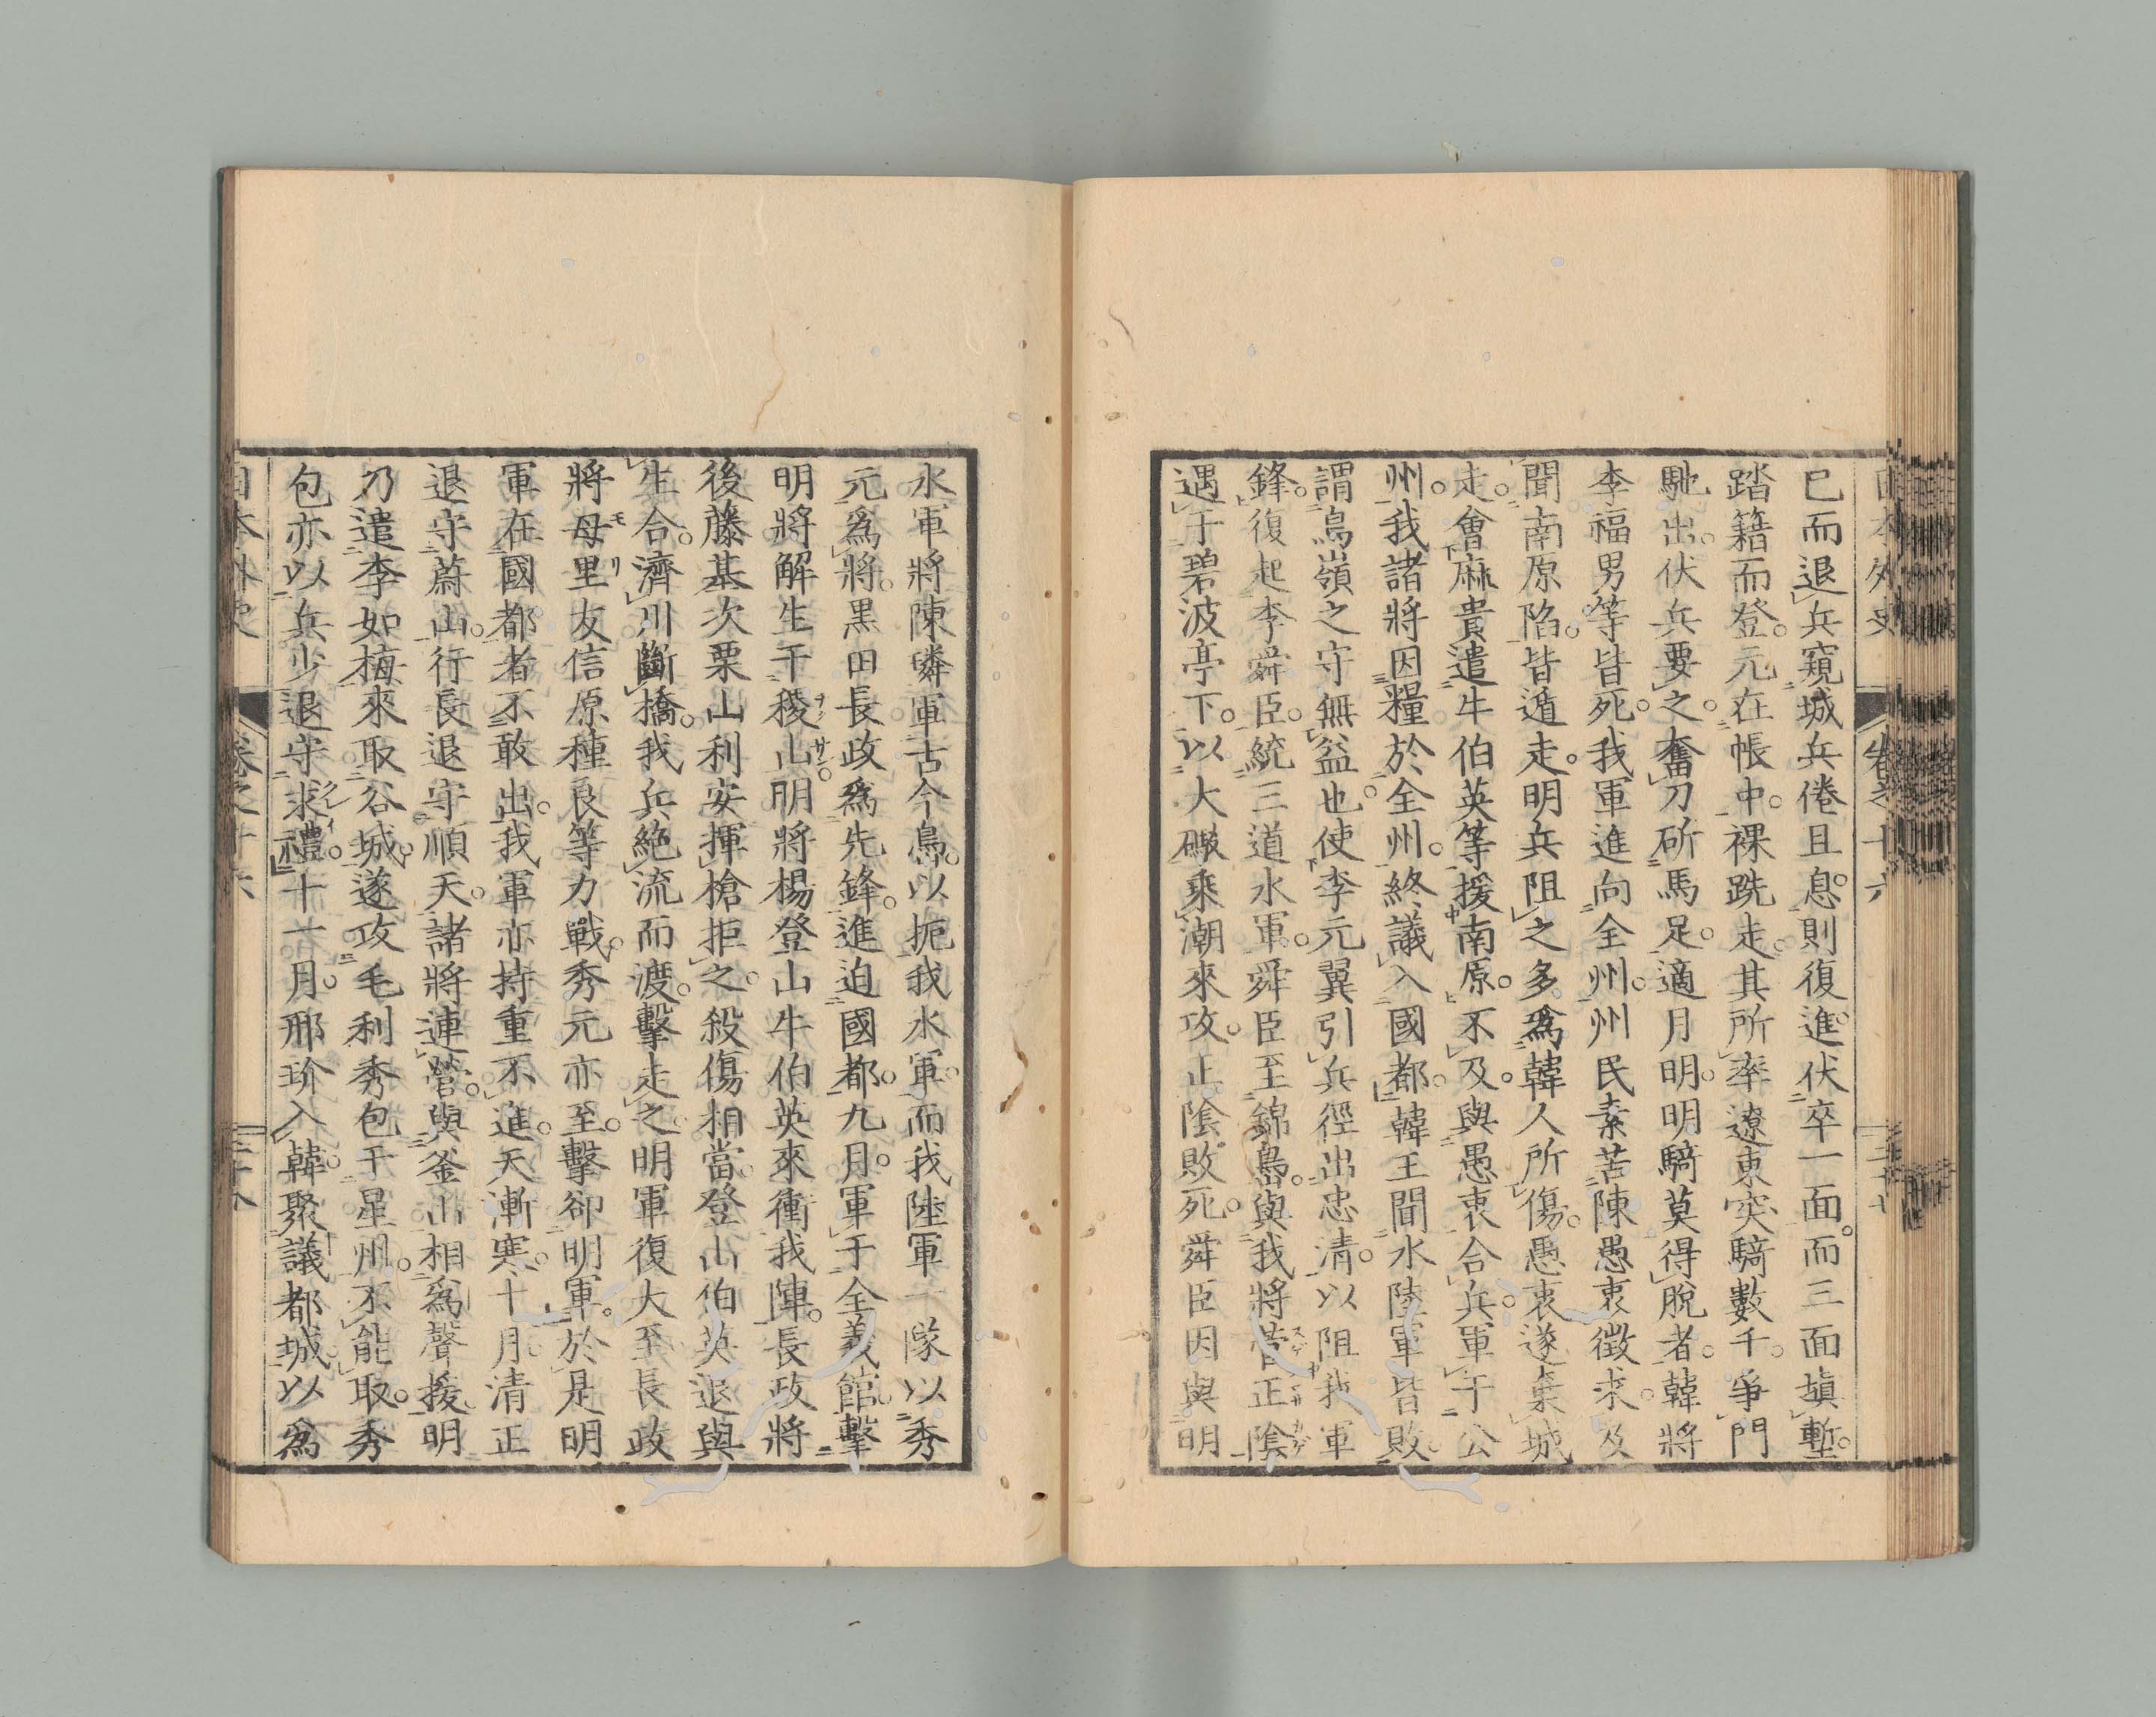 日本外史 卷之十六 三十七
已而退兵窺城兵倦且息則復進伏卒一面而三面塡塹
踏籍而登元在帳中裸跣走其所率遼東突騎數千爭門
馳出伏兵要之奮刀斫馬足適月明明騎莫得脫者韓將
李福男等皆死我軍進向全州州民素苦陳愚衷徵求及
聞南原陷皆遁走明兵阻之多爲韓人所傷愚衷遂棄城
走會麻貴遣牛伯英等援南原不及與愚衷合兵軍于公
州我諸將因糧於全州終議入國都韓王聞水陸軍皆敗
謂鳥嶺之守無益也使李元翼引兵徑出忠淸以阻我軍
鋒復起李舜臣統三道水軍舜臣至錦島與我將菅正陰
遇于碧波亭下以大礮乘潮來攻正陰敗死舜臣因與明
水軍將陳璘軍古今島以扼我水軍而我陸軍一隊以秀
元爲將黑田長政爲先鋒進迫國都九月軍于全義館擊
明將解生于稷山明將楊登山牛伯英來衝我陣長政將
後藤基次栗山利安揮槍拒之殺傷相當登山伯英退與
生合濟川斷橋我兵絕流而渡擊走之明軍復大至長政
將母里友信原種良等力戰秀元亦至擊卻明軍於是明
軍在國都者不敢出我軍亦持重不進天漸寒十月清正
退守蔚山行長退守順天諸將連營與釜山相爲聲援明
乃遣李如梅來取谷城遂攻毛利秀包于星州不能取秀
包亦以兵少退守求禮十一月邢玠入韓聚議都城以爲
日本外史 卷之十六 三十八